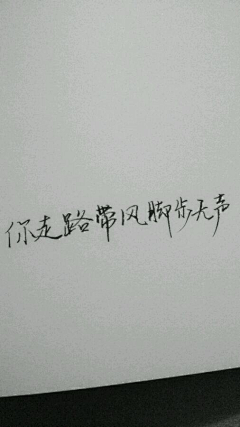 你走路带风脚步无声